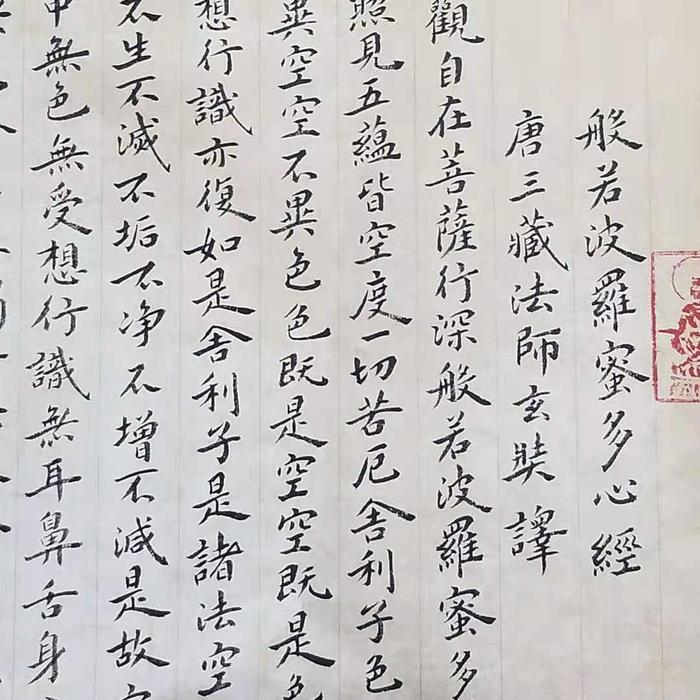 般若波羅蜜多心經
唐三藏法師玄奘譯
觀自在菩薩行深般若波羅蜜多
照見五蘊皆空度一切苦厄舍利子色
異空空不異色色既是空空既是色
想行識亦復如是舍利子是諸法空
不生不滅不垢不净不增不減是故
中無色無受想行識無耳鼻舌身